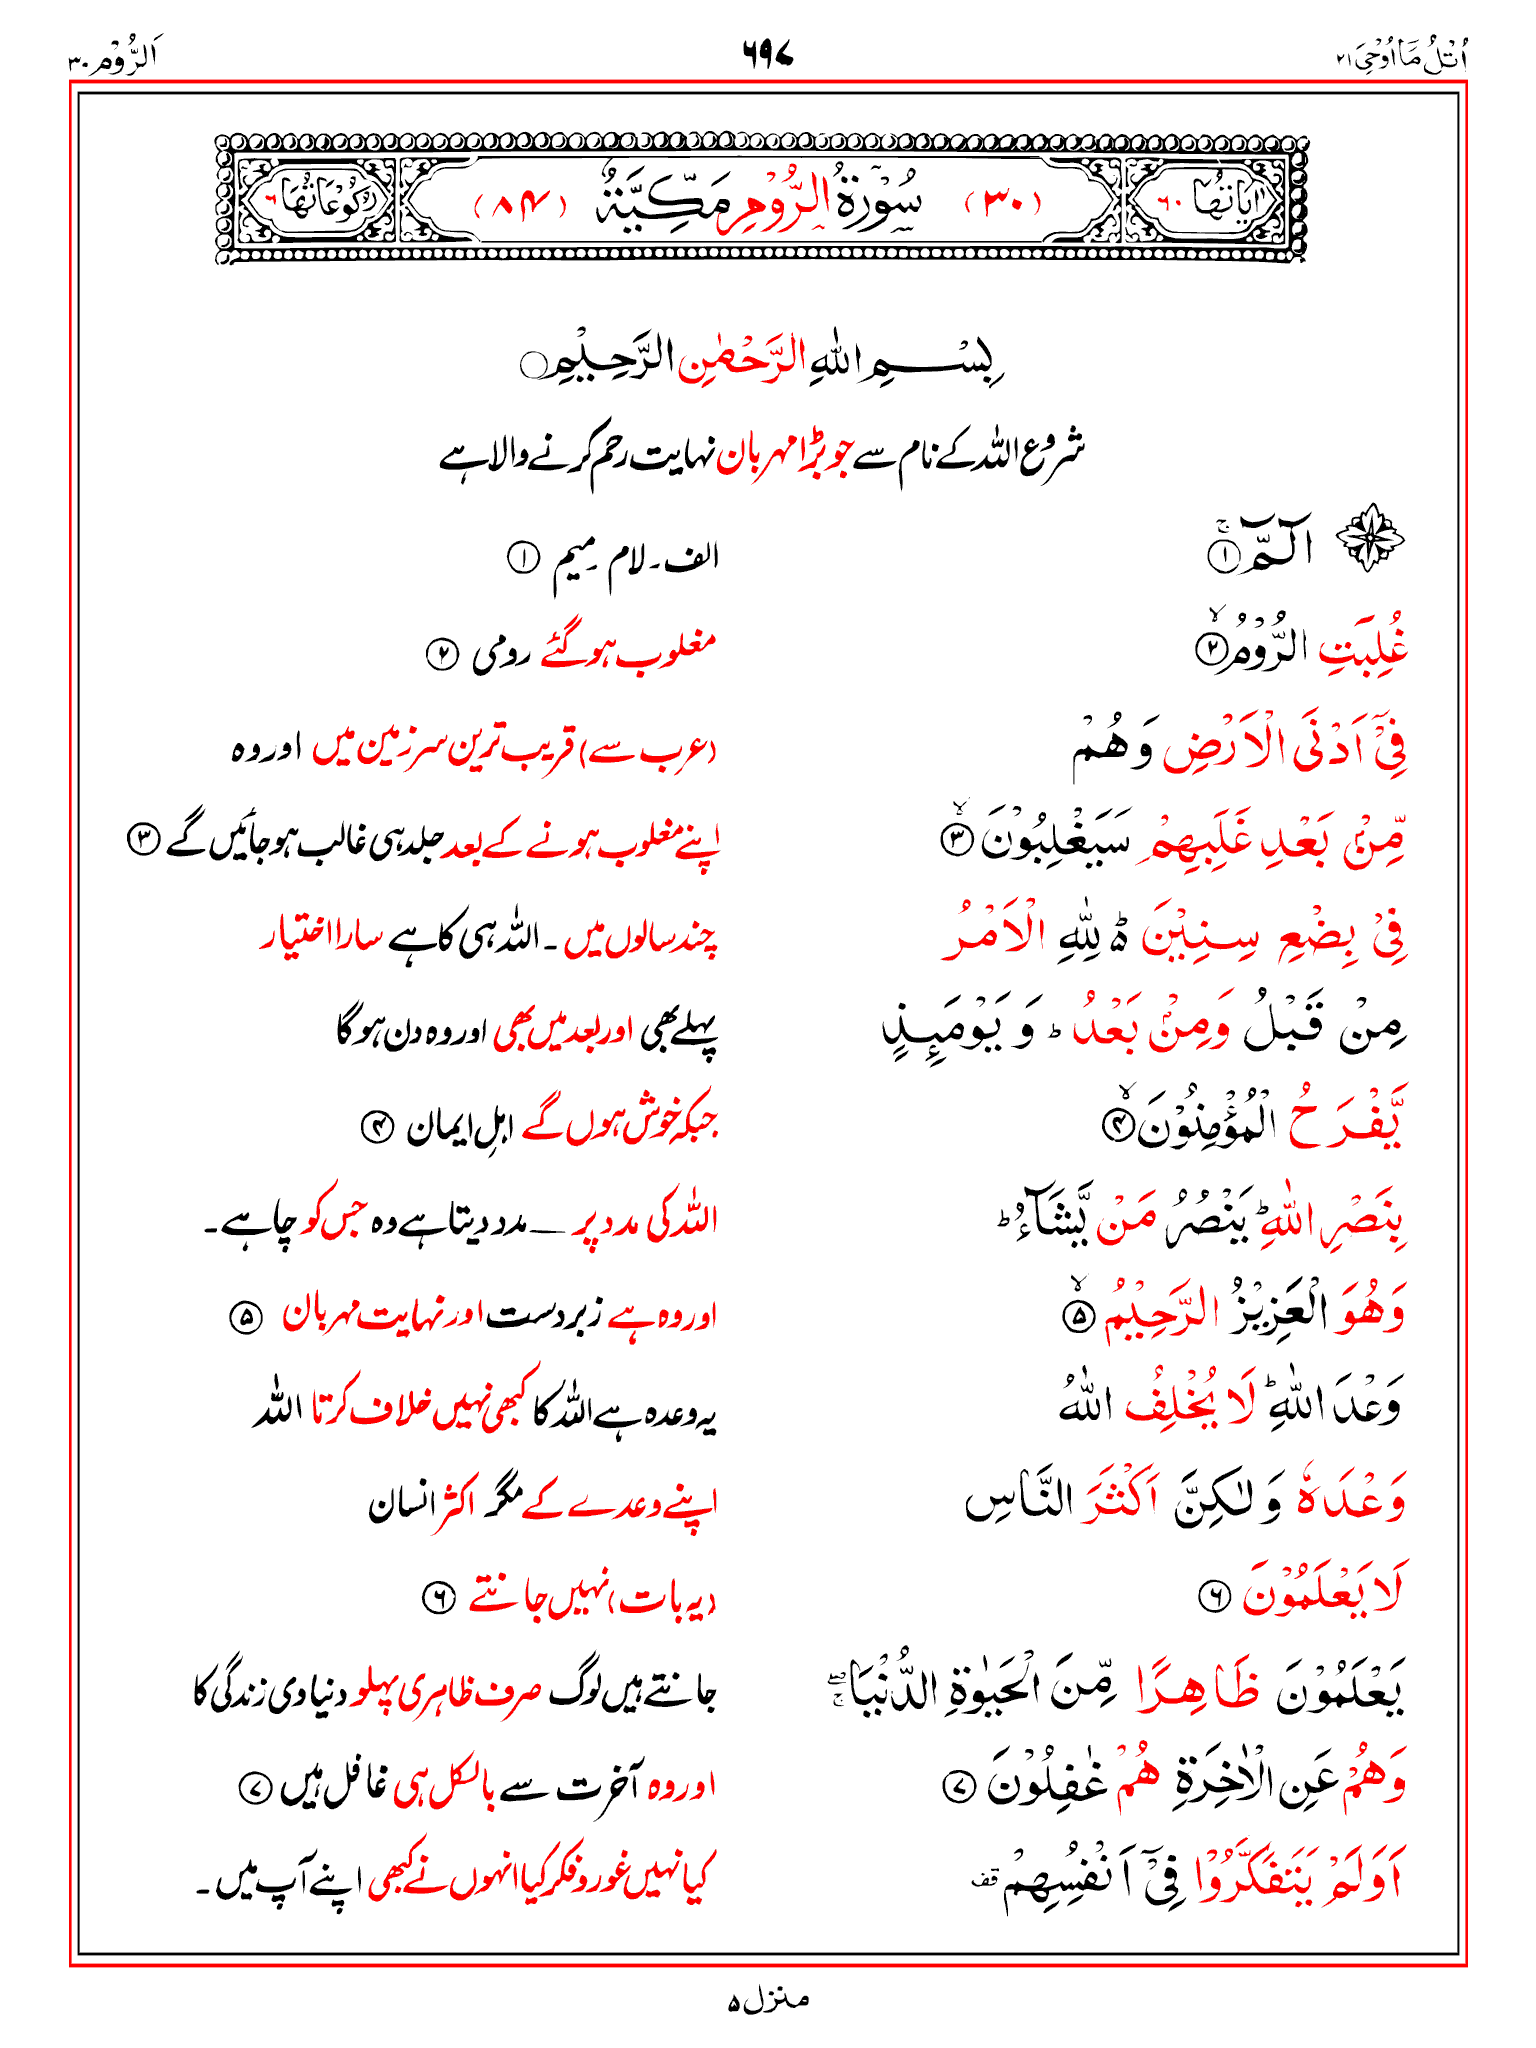 اُتْلُ مَآ اُوْحِیَ ۲۱ ۶۹۷ اَلرُّوْم ۳۰
اٰیَاتُهَا ۶۰ (۳۰) سُوْرَةُ الرُّوْمِ مَكِّیَّةٌ (۸۴) رُكُوْعَاتُهَا ۶
بِسْمِ اللّٰهِ الرَّحْمٰنِ الرَّحِیْمِ ○
شروع اللہ کے نام سے جو بڑا مہربان نہایت رحم کرنے والا ہے
الٓمّٓ ۚ ﴿۱﴾ الف۔ لام ۔ میم ﴿۱﴾
غُلِبَتِ الرُّوْمُ ۙ ﴿۲﴾ مغلوب ہوگئے رومی ﴿۲﴾
فِیْۤ اَدْنَی الْاَرْضِ وَ هُمْ (عرب سے) قریب ترین سرزمین میں اور وہ
مِّنْۢ بَعْدِ غَلَبِهِمْ سَیَغْلِبُوْنَ ۙ ﴿۳﴾ اپنے مغلوب ہونے کے بعد جلد ہی غالب ہوجائیں گے ﴿۳﴾
فِیْ بِضْعِ سِنِیْنَ ؕ۬ لِلّٰهِ الْاَمْرُ چند سالوں میں ۔ اللہ ہی کا ہے سارا اختیار
مِنْ قَبْلُ وَ مِنْۢ بَعْدُ ؕ وَ یَوْمَىِٕذٍ پہلے بھی اور بعد میں بھی اور وہ دن ہوگا
یَّفْرَحُ الْمُؤْمِنُوْنَ ۙ ﴿۴﴾ جبکہ خوش ہوں گے اہلِ ایمان ﴿۴﴾
بِنَصْرِ اللّٰهِ ؕ یَنْصُرُ مَنْ یَّشَآءُ ؕ اللہ کی مدد پر — مدد دیتا ہے وہ جس کو چاہے۔
وَ هُوَ الْعَزِیْزُ الرَّحِیْمُ ۙ ﴿۵﴾ اور وہ ہے زبردست اور نہایت مہربان ﴿۵﴾
وَعْدَ اللّٰهِ ؕ لَا یُخْلِفُ اللّٰهُ یہ وعدہ ہے اللہ کا کبھی نہیں خلاف کرتا اللہ
وَعْدَهٗ وَ لٰكِنَّ اَكْثَرَ النَّاسِ اپنے وعدے کے مگر اکثر انسان
لَا یَعْلَمُوْنَ ﴿۶﴾ (یہ بات) نہیں جانتے ﴿۶﴾
یَعْلَمُوْنَ ظَاهِرًا مِّنَ الْحَیٰوةِ الدُّنْیَا ۖۚ جانتے ہیں لوگ صرف ظاہری پہلو دنیاوی زندگی کا
وَ هُمْ عَنِ الْاٰخِرَةِ هُمْ غٰفِلُوْنَ ﴿۷﴾ اور وہ آخرت سے بالکل ہی غافل ہیں ﴿۷﴾
اَوَ لَمْ یَتَفَكَّرُوْا فِیْۤ اَنْفُسِهِمْ قف کیا نہیں غور وفکر کیا انہوں نے کبھی اپنے آپ میں۔
منزل ۵